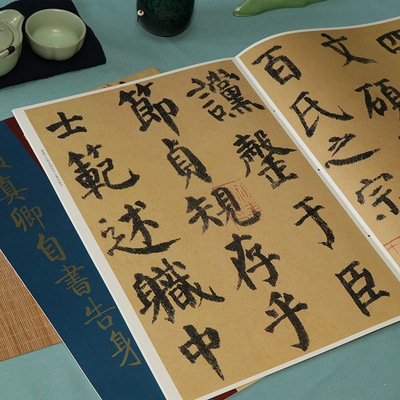 四
文碩
百氏之宗
讜罄于臣
節貞規存乎
士範述職中
真卿自書告身